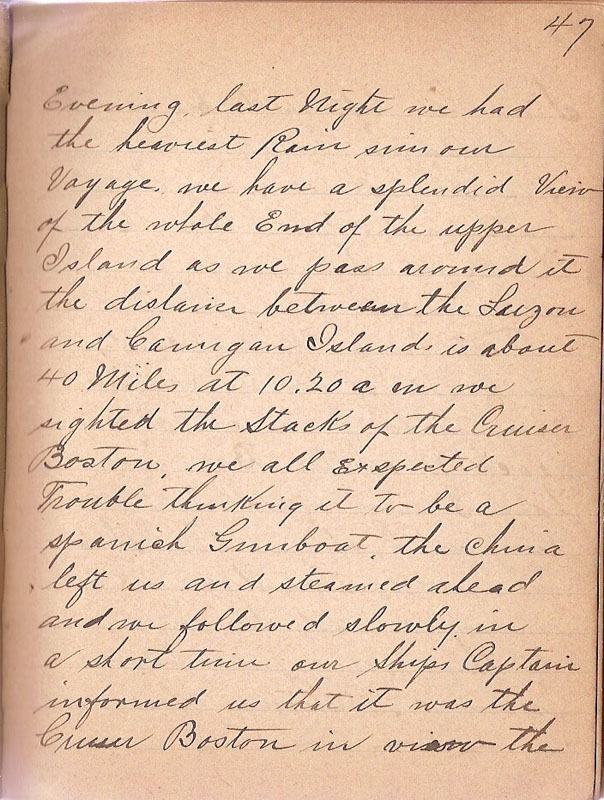 47
Evening, last Night we had
the heaviest Rain sinn our
Voyage. we have a splendid View
of the whole End of the upper
Island as we pass around it
the distance between the Luzon
and Camigan Island. is about
40 Miles at 10.20 a m we
sighted the Stacks of the Cruiser
Boston, we all Exspected
Trouble thinking it to be a
spanish Gunboat, the China
left us and steamed ahead
and we followed slowly. in
a short time our Ships Captain
informed us that it was the
Cruiser Boston in view the